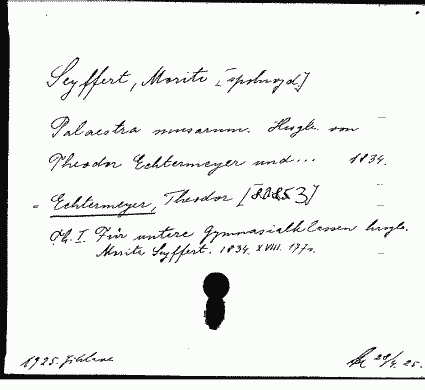 Seyffert, Moritz [spoluvyd.]
Palaestra musarum. Hrsgb. von
Theodor Echtermeyer und... 1834.
= Echtermeyer, Theodor [80853]
Th. I. Für untere Gymnasialklassen hrsgb.
Moritz Seyffert. 1834. XVIII. 177 s.
1925. 28/4. 25.